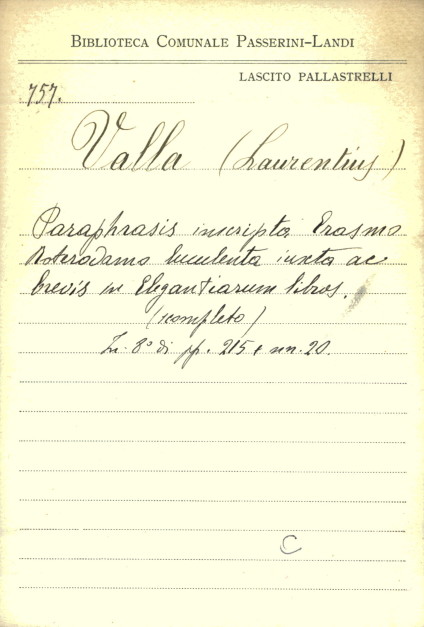 BIBLIOTECA COMUNALE PASSERINI-LANDI
LASCITO PALLASTRELLI
757.
Valla (Laurentius)
Paraphrasis inscripta Erasmo
Roterodamo luculenta iuxta ac
brevis in Elegantiarum libros.
(completo)
In 8° di pp. 215 + nn. 20.
C